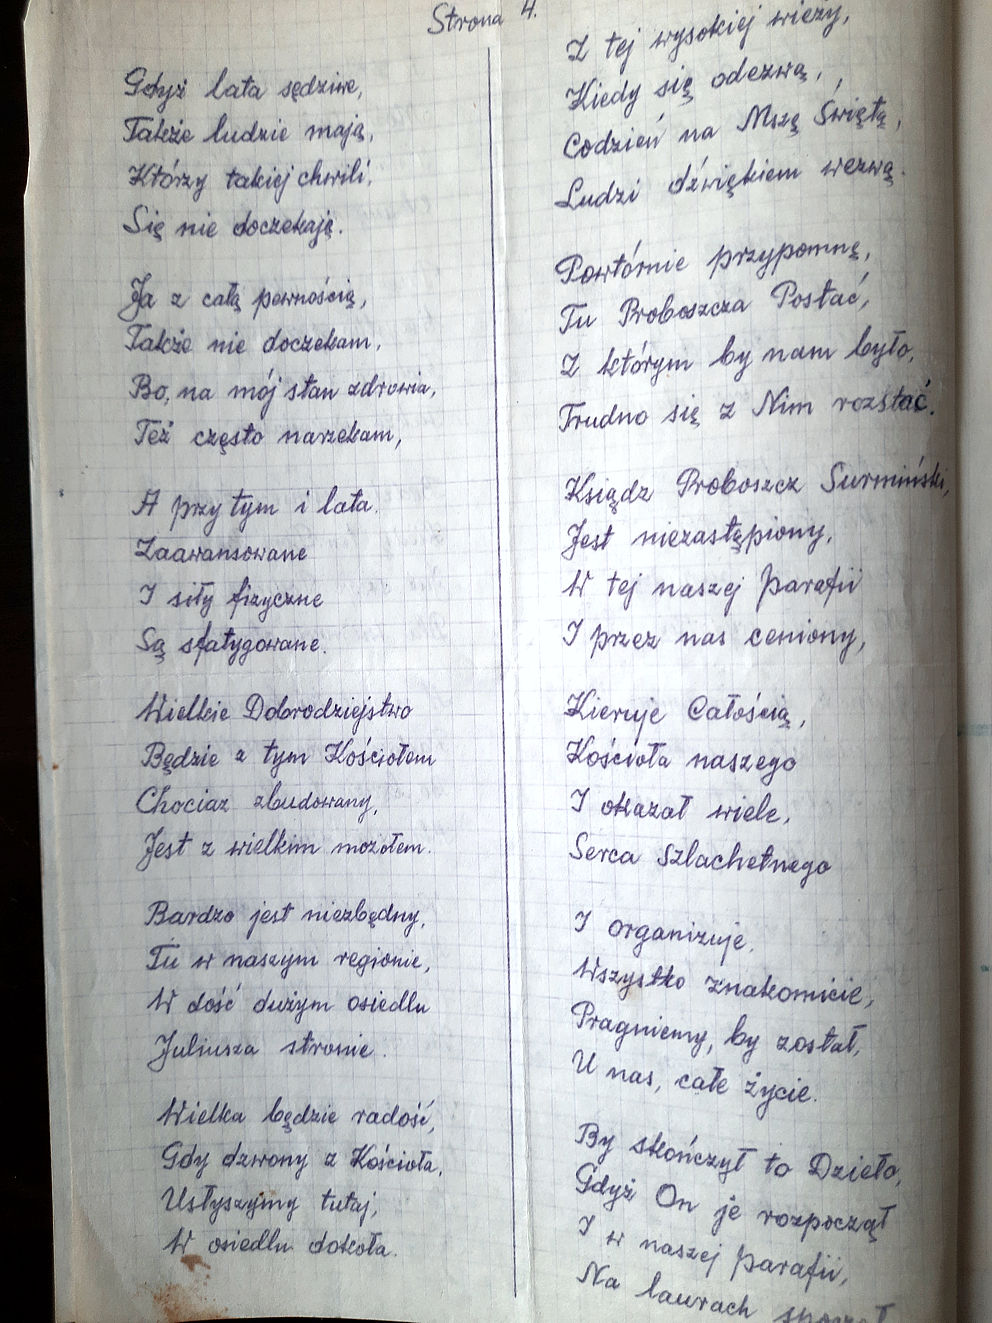 Strona 4.
Gdyż lata sędziwe,
Także ludzie mają,
Którzy takiej chwili,
Się nie doczekają.
Ja z całą pewnością,
Także nie doczekam,
Bo, na mój stan zdrowia,
Też często narzekam,
A przy tym i lata
Zaawansowane
I siły fizyczne
Są sfatygowane.
Wielkie Dobrodziejstwo
Będzie z tym Kościołem
Chociaż zbudowany,
Jest z wielkim mozołem.
Bardzo jest niezbędny,
Tu w naszym regionie,
W dość dużym osiedlu
Juliusza stronie.
Wielka będzie radość,
Gdy dzwony z Kościoła,
Usłyszymy tutaj,
W osiedlu dokoła.
Z tej wysokiej wieży,
Kiedy się odezwą,
Codzień na Mszę Świętą,
Ludzi dźwiękiem wezwą.
Powtórnie przypomnę,
Tu Proboszcza Postać,
Z którym by nam było,
Trudno się z Nim rozstać.
Ksiądz Proboszcz Surmiński,
Jest niezastępiony,
W tej naszej parafii
I przez nas ceniony,
Kieruje Całością,
Kościoła naszego
I okazał wiele,
Serca Szlachetnego
I organizuje,
Wszystko znakomicie,
Pragniemy, by został,
U nas, całe życie.
By skończył to Dzieło,
Gdyż On je rozpoczął
I w naszej parafii,
Na laurach spoczął